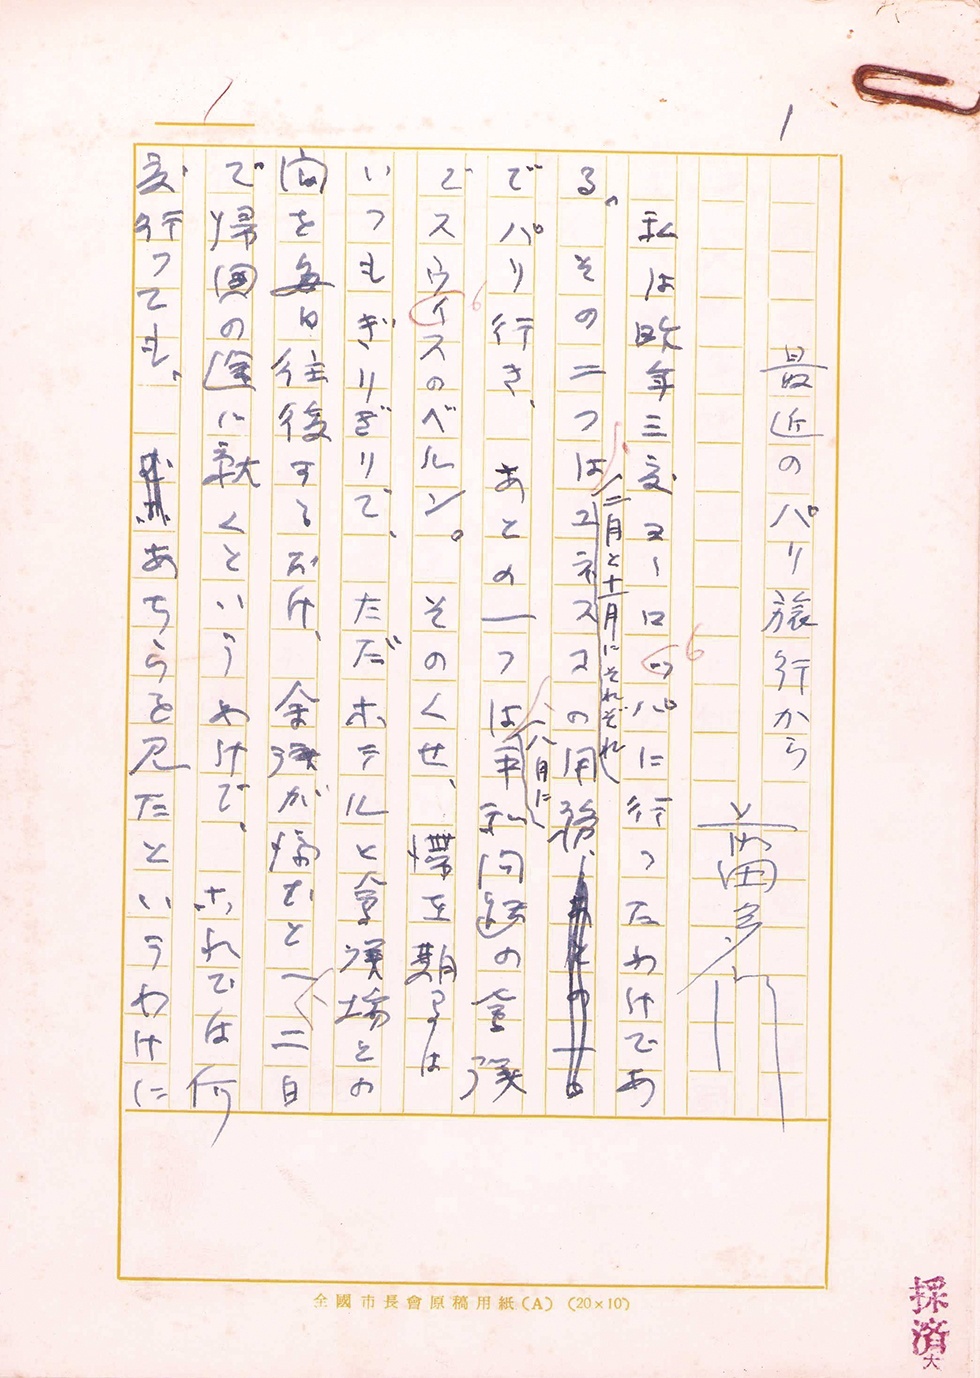 1
最近のパリ旅行から
前田多門
私は昨年三度ヨーロッパに行ったわけであ
二月と十一月にそれぞれ
る。その二つはユネスコの用務
八月に
でパリ行き、あとの一つは平和問題の会議
でスウイスのベルン。そのくせ、滞在期間は
いつもぎりぎりで、ただホテルと会議場との
間を毎日往復するだけ、会議が済むと一二日
で帰国の途に就くというわけで、これでは何
度行っても、あちらを見たというわけに
全國市長會原稿用紙(A) (20×10)
採済
大